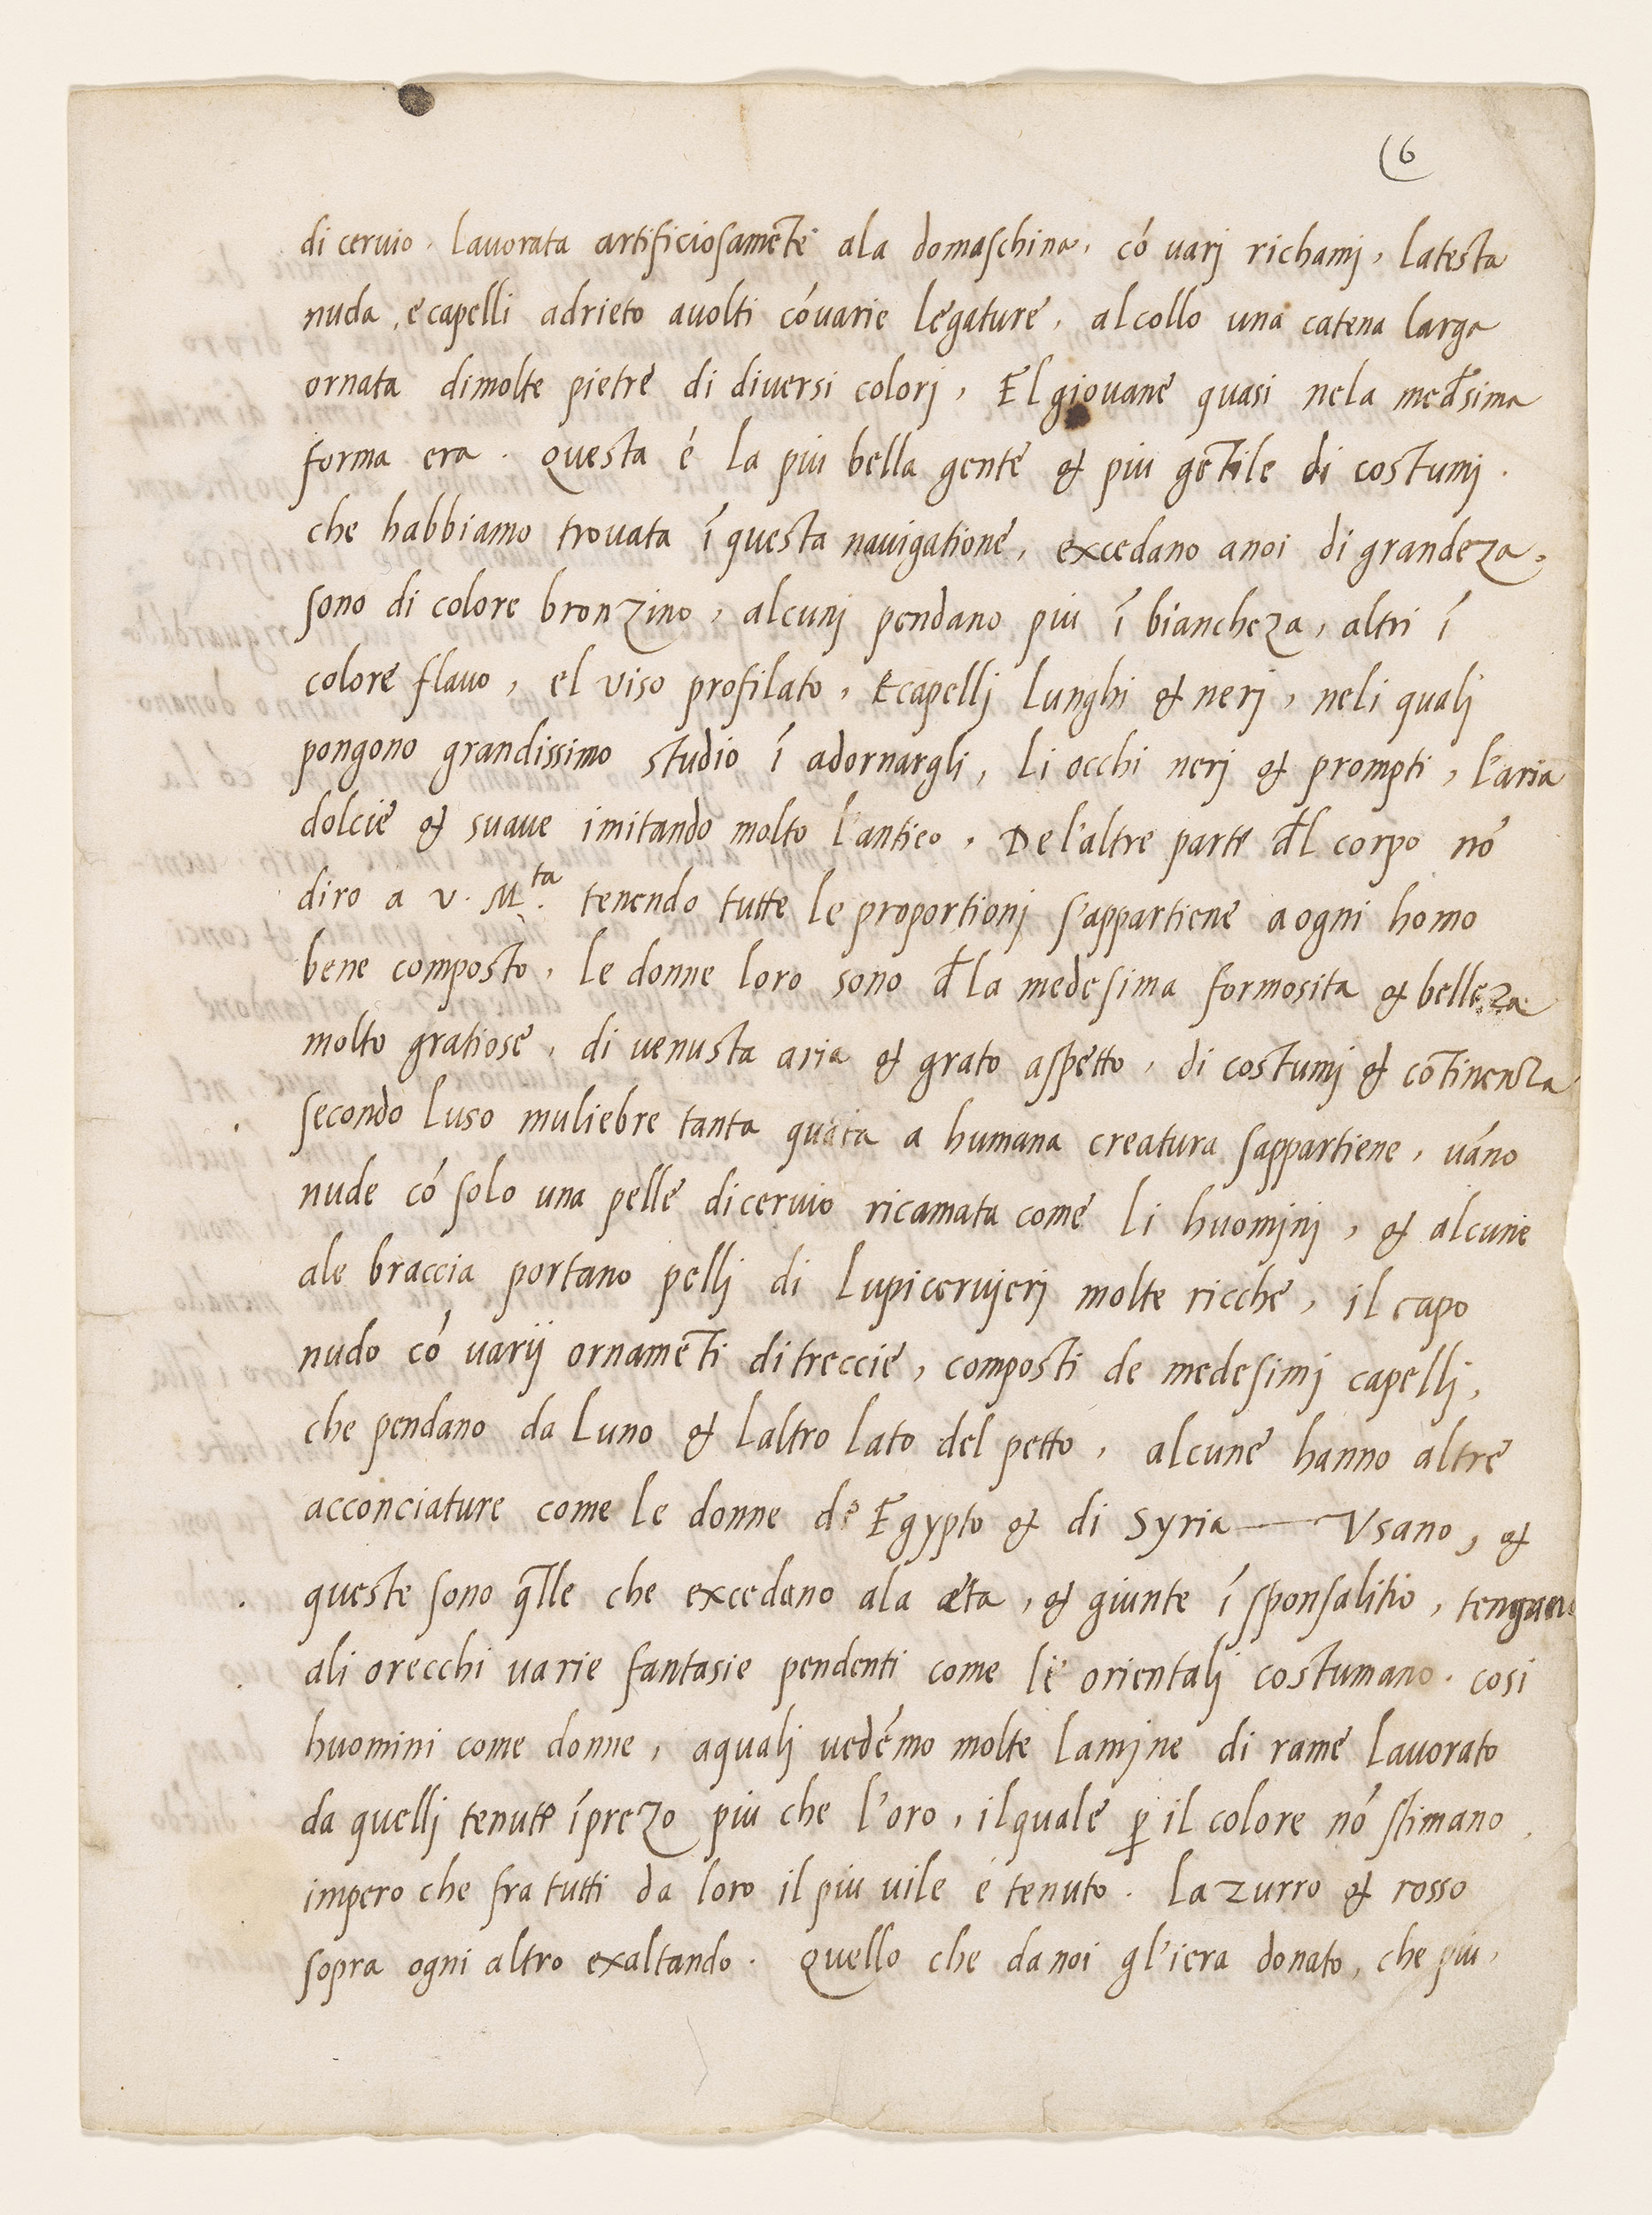 (6
di ceruio. lauorata artificiosamēte ala domaschina, có varj richamj, latesta
nuda, e capelli adrieto auolti cóuarie legature, al collo una catena larga
ornata dimolte pietre di diuersi colorj, El giouane quasi nela med̄sima
forma era. Questa é la piu bella gente & piu gētile di costumj.
che habbiamo trouata ī questa nauigatione, excedano anoi di grandeza,
sono di colore bronzino, alcunj pendano piu ī biancheza, altri ī
colore flauo, el viso profilato, E capellj lunghi & nerj, neli qualj
pongono grandissimo studio ī adornargli, li occhi nerj & prompti, l'aria
dolcie & suaue imitando molto l'antico, De l'altre parte d̄l corpo nó
diro a v. M.ta tenendo tutte le proportionj s'appartiene a ogni homo
bene composto, le donne loro sono d̄la medesima formosita & belleza
molto gratiose, di uenusta aria & grato aspetto, di costumj & cōtinenza
secondo luso muliebre tanta quāta a humana creatura sappartiene, uáno
nude có solo una pelle di ceruio ricamata come li huominj, & alcune
ale braccia portano pellj di lupiceruierj molte ricche, il capo
nudo có uarij ornamēti di treccie, composti de medesimj capellj,
che pendano da luno & laltro lato del petto, alcune hanno altre
acconciature come le donne de Egypto & di Syria — Vsano, &
queste sono q̄lle che excedano ala æta, & giunte ī sponsalitio, tengano
ali orecchi uarie fantasie pendenti come le orientalj costumano. cosi
huomini come donne, aqualj vedémo molte lamjne di rame lauorato
da quellj tenute īprezo piu che l'oro, ilquale p̱ il colore nó stimano,
impero che fra tutti da loro il piu uile é tenuto. lazurro & rosso
sopra ogni altro exaltando. Quello che da noi gl'iera donato, che piu,